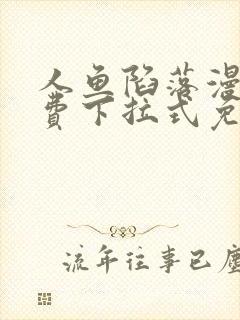 人鱼陷落漫
费下拉式免
流年往事已尘